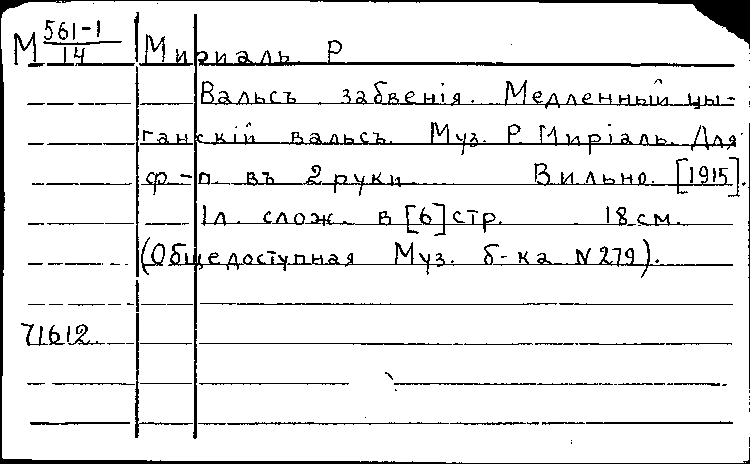 М 561-1/14 Мириаль Р
Вальсъ забвенія. Медленный цы-
ганскій вальсъ. Муз. Р. Миріаль. Для
ф-п. въ 2 руки Вильно. [1915].
1л. слож. в [6] стр. 18 см.
(Общедоступная Муз. б-ка N 279).
71612.